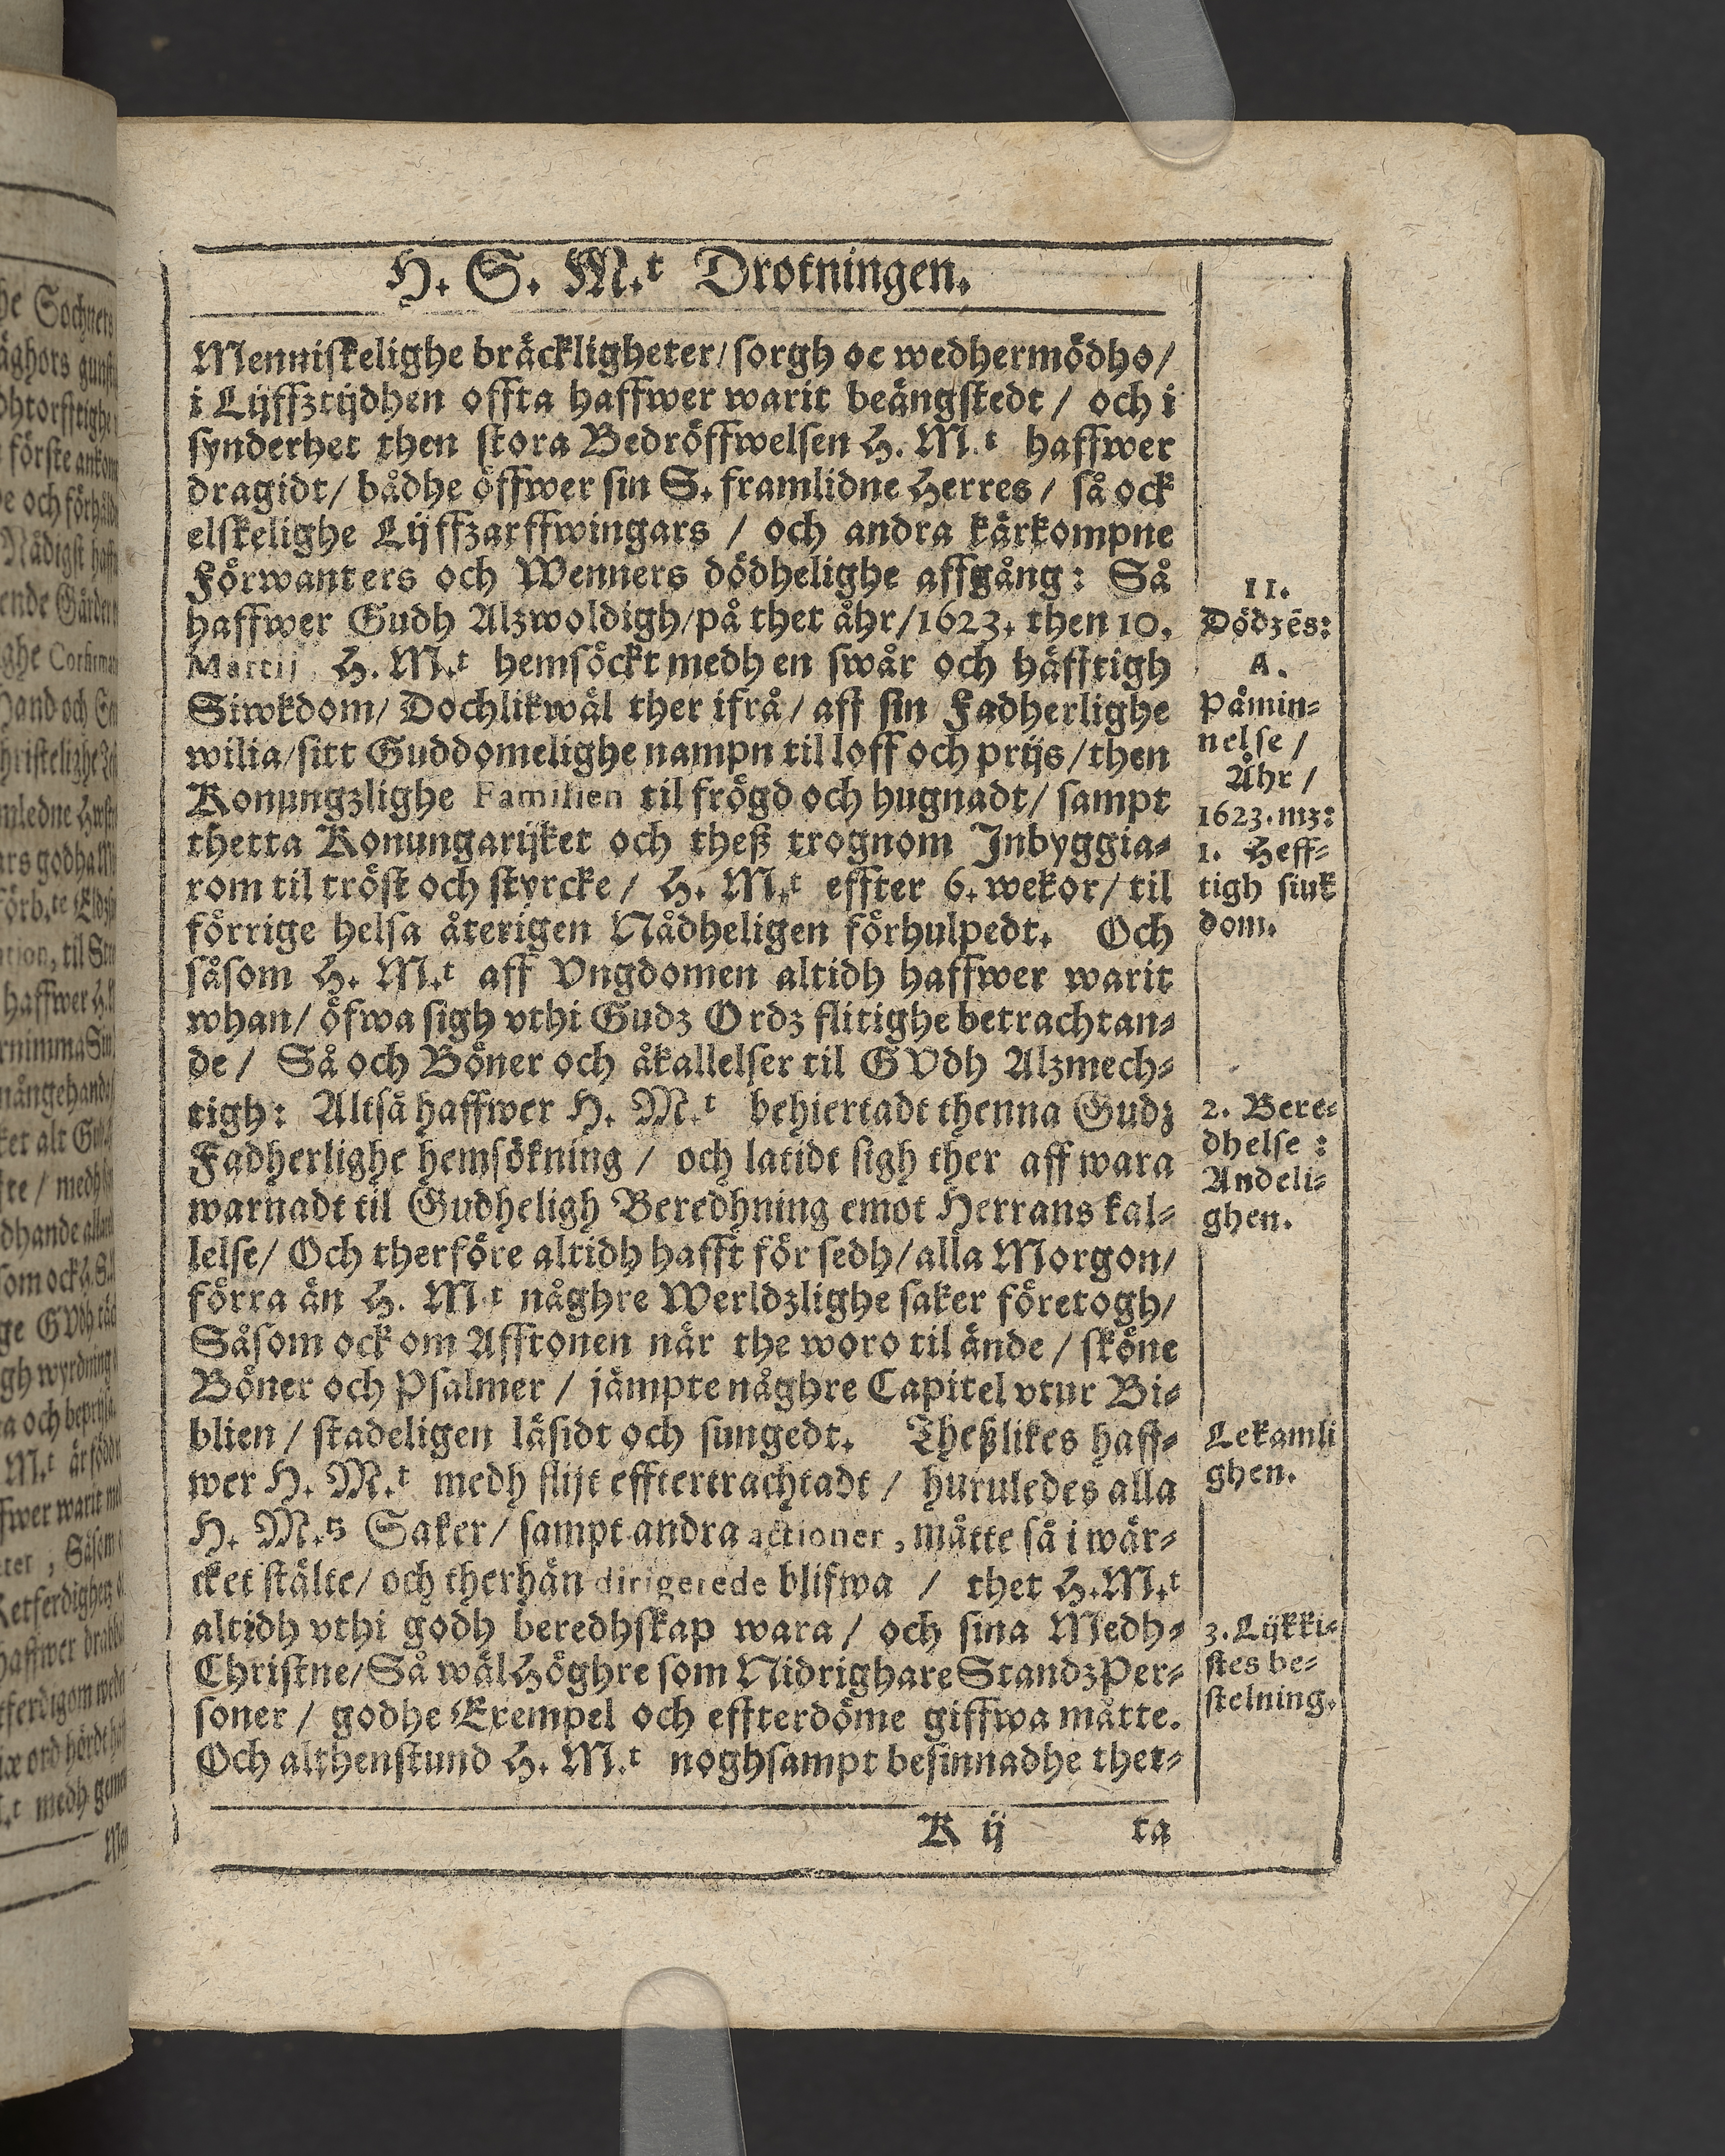 H. S. M.t Drotningen.
Menniskelighe bräckligheter/ sorgh oc wedhermödho/
i Lijffztijdhen offta haffwer warit beängstedt / och i
synderhet then stora Bedröffwelsen H. M.t haffwer
dragidt/ bådhe öffwer sin S. framlidne Herres / så ock
elskelighe Lijffzarffwingars / och andra kärkompne
Förwanters och Wenners dödhelighe affgång: Så
haffwer Gudh Alzwoldigh/på thet åhr/1623. then 10.
Martij H. M.t hemsöckt medh en swår och häfftigh
Siwkdom/ Dochlikwäl ther ifrå/ aff sin Fadherlighe
wilia/sitt Guddomelighe nampn til loff och prijs/then
Konungzlighe Familien til frögd och hugnadt/ sampt
thetta Konungarijket och theß trognom Inbyggia-
rom til tröst och styrcke / H. M.t effter 6. wekor/ til
förrige helsa återigen Nådheligen förhulpedt. Och
såsom H. M.t aff Vngdomen altidh haffwer warit
whan/ öfwa sigh vthi Gudz Ordz flitighe betrachtan-
de / Så och Böner och åkallelser til GVdh Alzmech-
tigh: Altså haffwer H. M.t behiertadt thenna Gudz
Fadherlighe hemsökning / och latidt sigh ther aff wara
warnadt til Gudheligh Beredhning emot Herrans kal-
lelse/ Och therföre altidh hafft för sedh/alla Morgon/
förra än H. M.t någhre Werldzlighe saker företogh/
Såsom ock om Afftonen när the woro til ände / sköne
Böner och Psalmer / jämpte någhre Capitel vtur Bi-
blien / stadeligen läsidt och sungedt. Theßlikes haff-
wer H. M.t medh flijt efftertrachtadt / huruledes alla
H. M.ts Saker/ sampt andra actioner, måtte så i wär-
cket stälte/ och therhän dirigerede blifwa / thet H.M.t
altidh vthi godh beredhskap wara / och sina Medh-
Christne/Så wäl Höghre som Nidrighare StandzPer-
soner / godhe Exempel och effterdöme giffwa måtte.
Och althenstund H. M.t noghsampt besinnadhe thet-
K ij ta
II.
Dödzēs:
A.
Påmin-
nelse /
Åhr /
1623. mz:
1. Heff-
tigh siuk
dom.
2. Bere-
dhelse :
Andeli-
ghen.
Lekamli
ghen.
3. Lijkki-
stes be-
stelning.